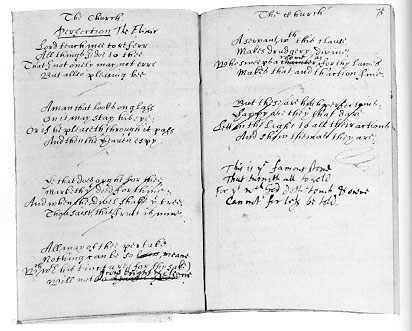 The Church
Perfection The Elixir
Lord teach mee to referr
All things I doe to thee
That I not onely may not erre
But allso pleasing bee
A man that looks on glass
On it may stay his eye:
Or if he pleaseth, through it pass
And then the Heaven espy
He that does ought for thee
Marketh yt deed for thine:
And when the Divel shakes ye tree
Thou saist, this fruit is mine.
All may of thee partake:
Nothing can be so low, meane
Wch wth his tincture (for thy sake)
Will not grow bright & cleane
The Church
A servant wth this clause
Makes drudgery divine.
room, as
Who sweeps a chamber for thy Laws
Makes that and th'action fine.
But these are high perfections:
Happy are they that dare
Lett in the Light to all their actions
And show them as they are.
This is ye famous stone
That turneth all to gold
For yt wch God doth touch & owne
Cannot for less be told.